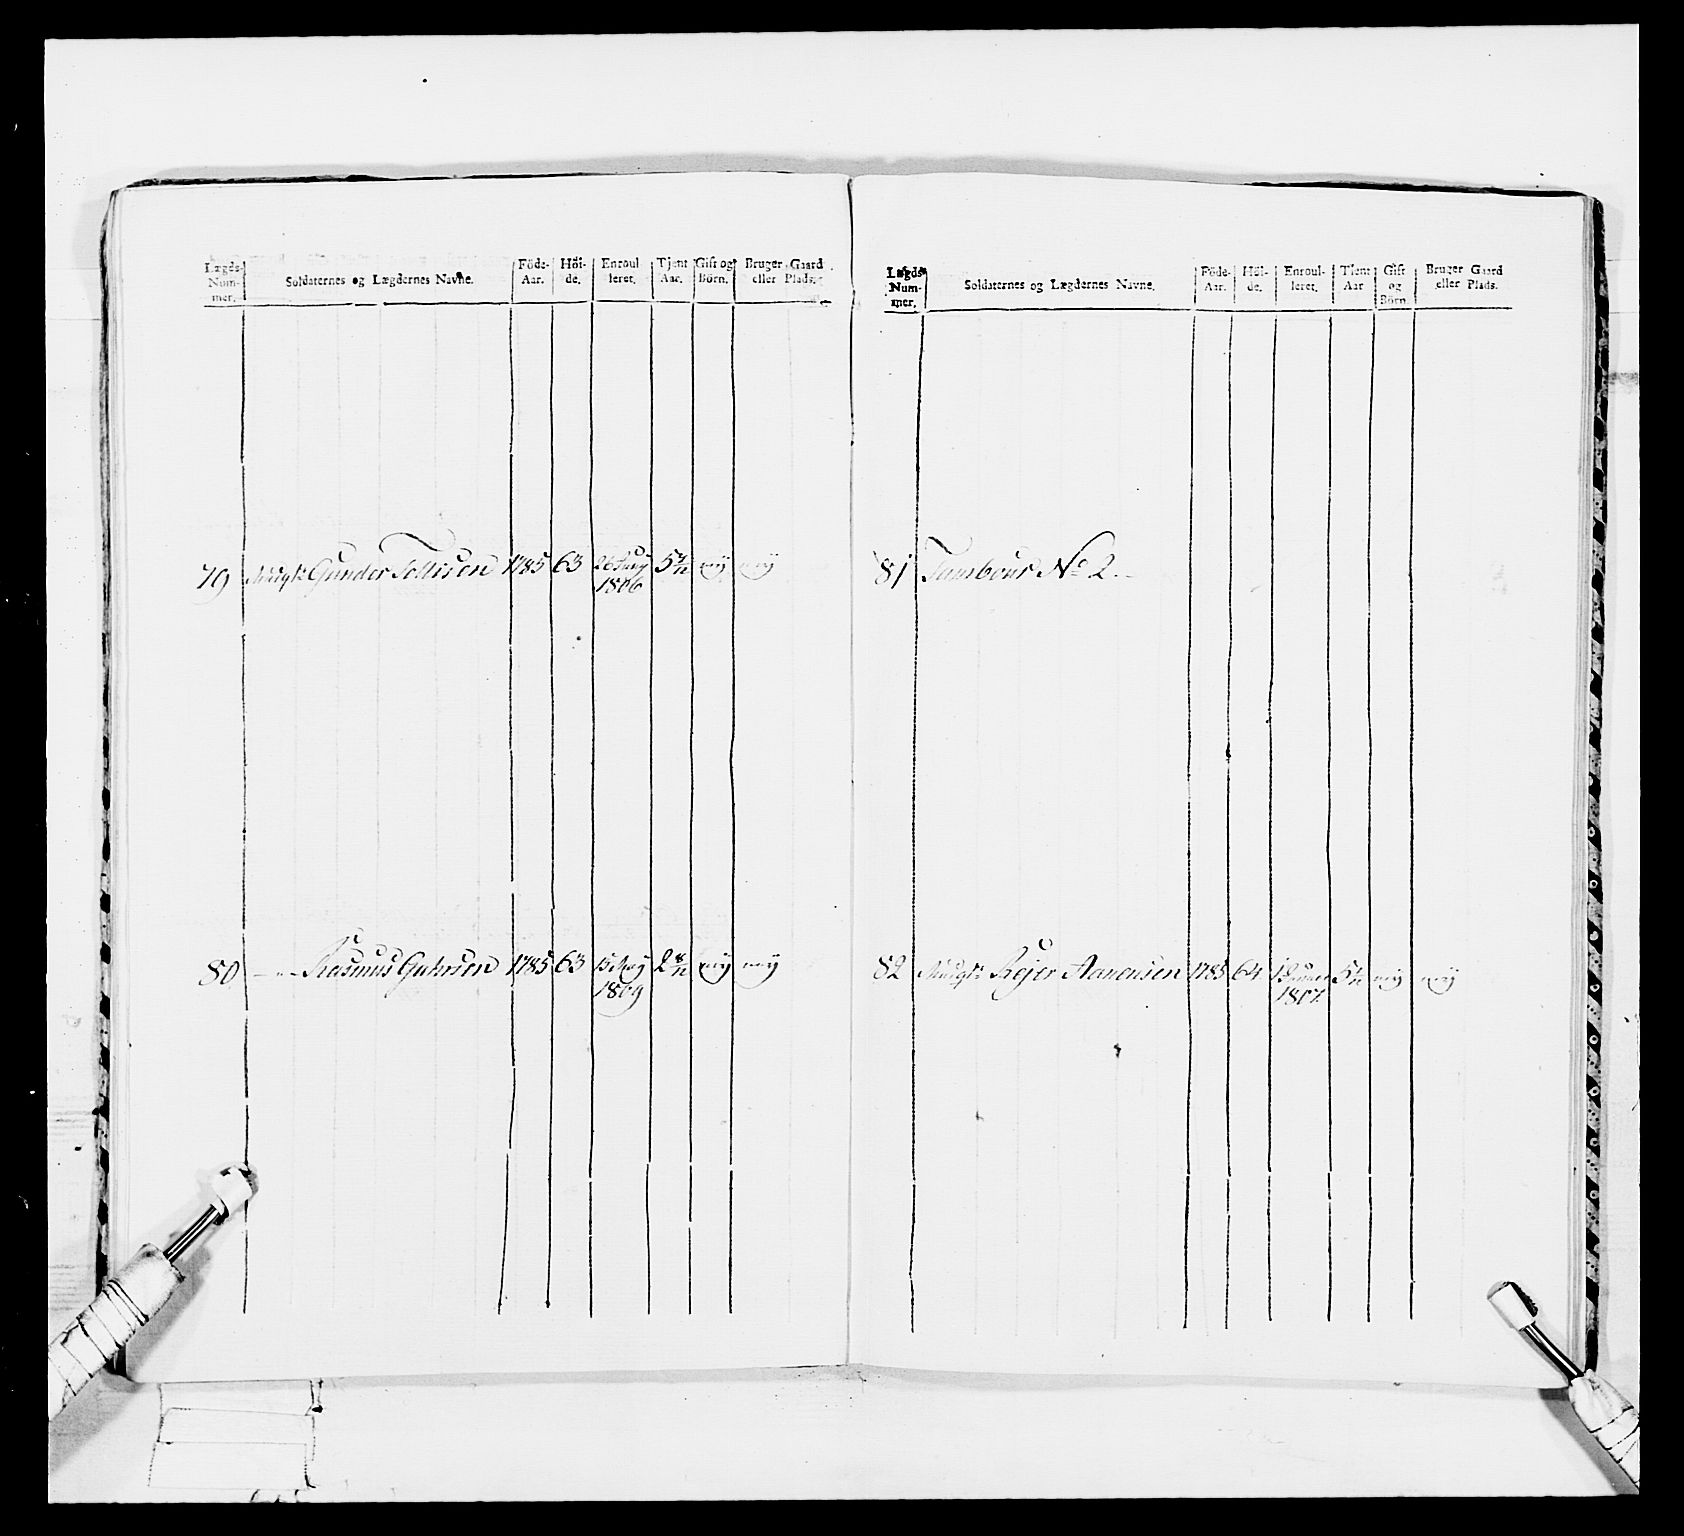 Lægds-
Num-
mer.
Soldaternes og Lægdernes Navne.
Föde-
Aar.
Höi-
de.
Enroul
leret.
Tjent
Aar.
Gift og
Börn.
Bruger Gaard
eller Plads.
79 Musqt: Gunder Tellisen 1785 63 26 Juny 5 11/12 nÿ nÿ
1806
80 — " — Rasmus Guhrsen 1785 63 15 Maÿ 2 8/12 nÿ nÿ
1809
Lægds
Num-
mer.
Soldaternes og Lægdernes Navne.
Föde-
Aar.
Höi-
de.
Enroul-
leret.
Tjent
Aar
Gift
og
Börn.
Bruger Gaard
eller Plads.
81 Tambour No 2.
82 Musqt: Rejer Aanensen 1785 64 nÿ nÿ
1807